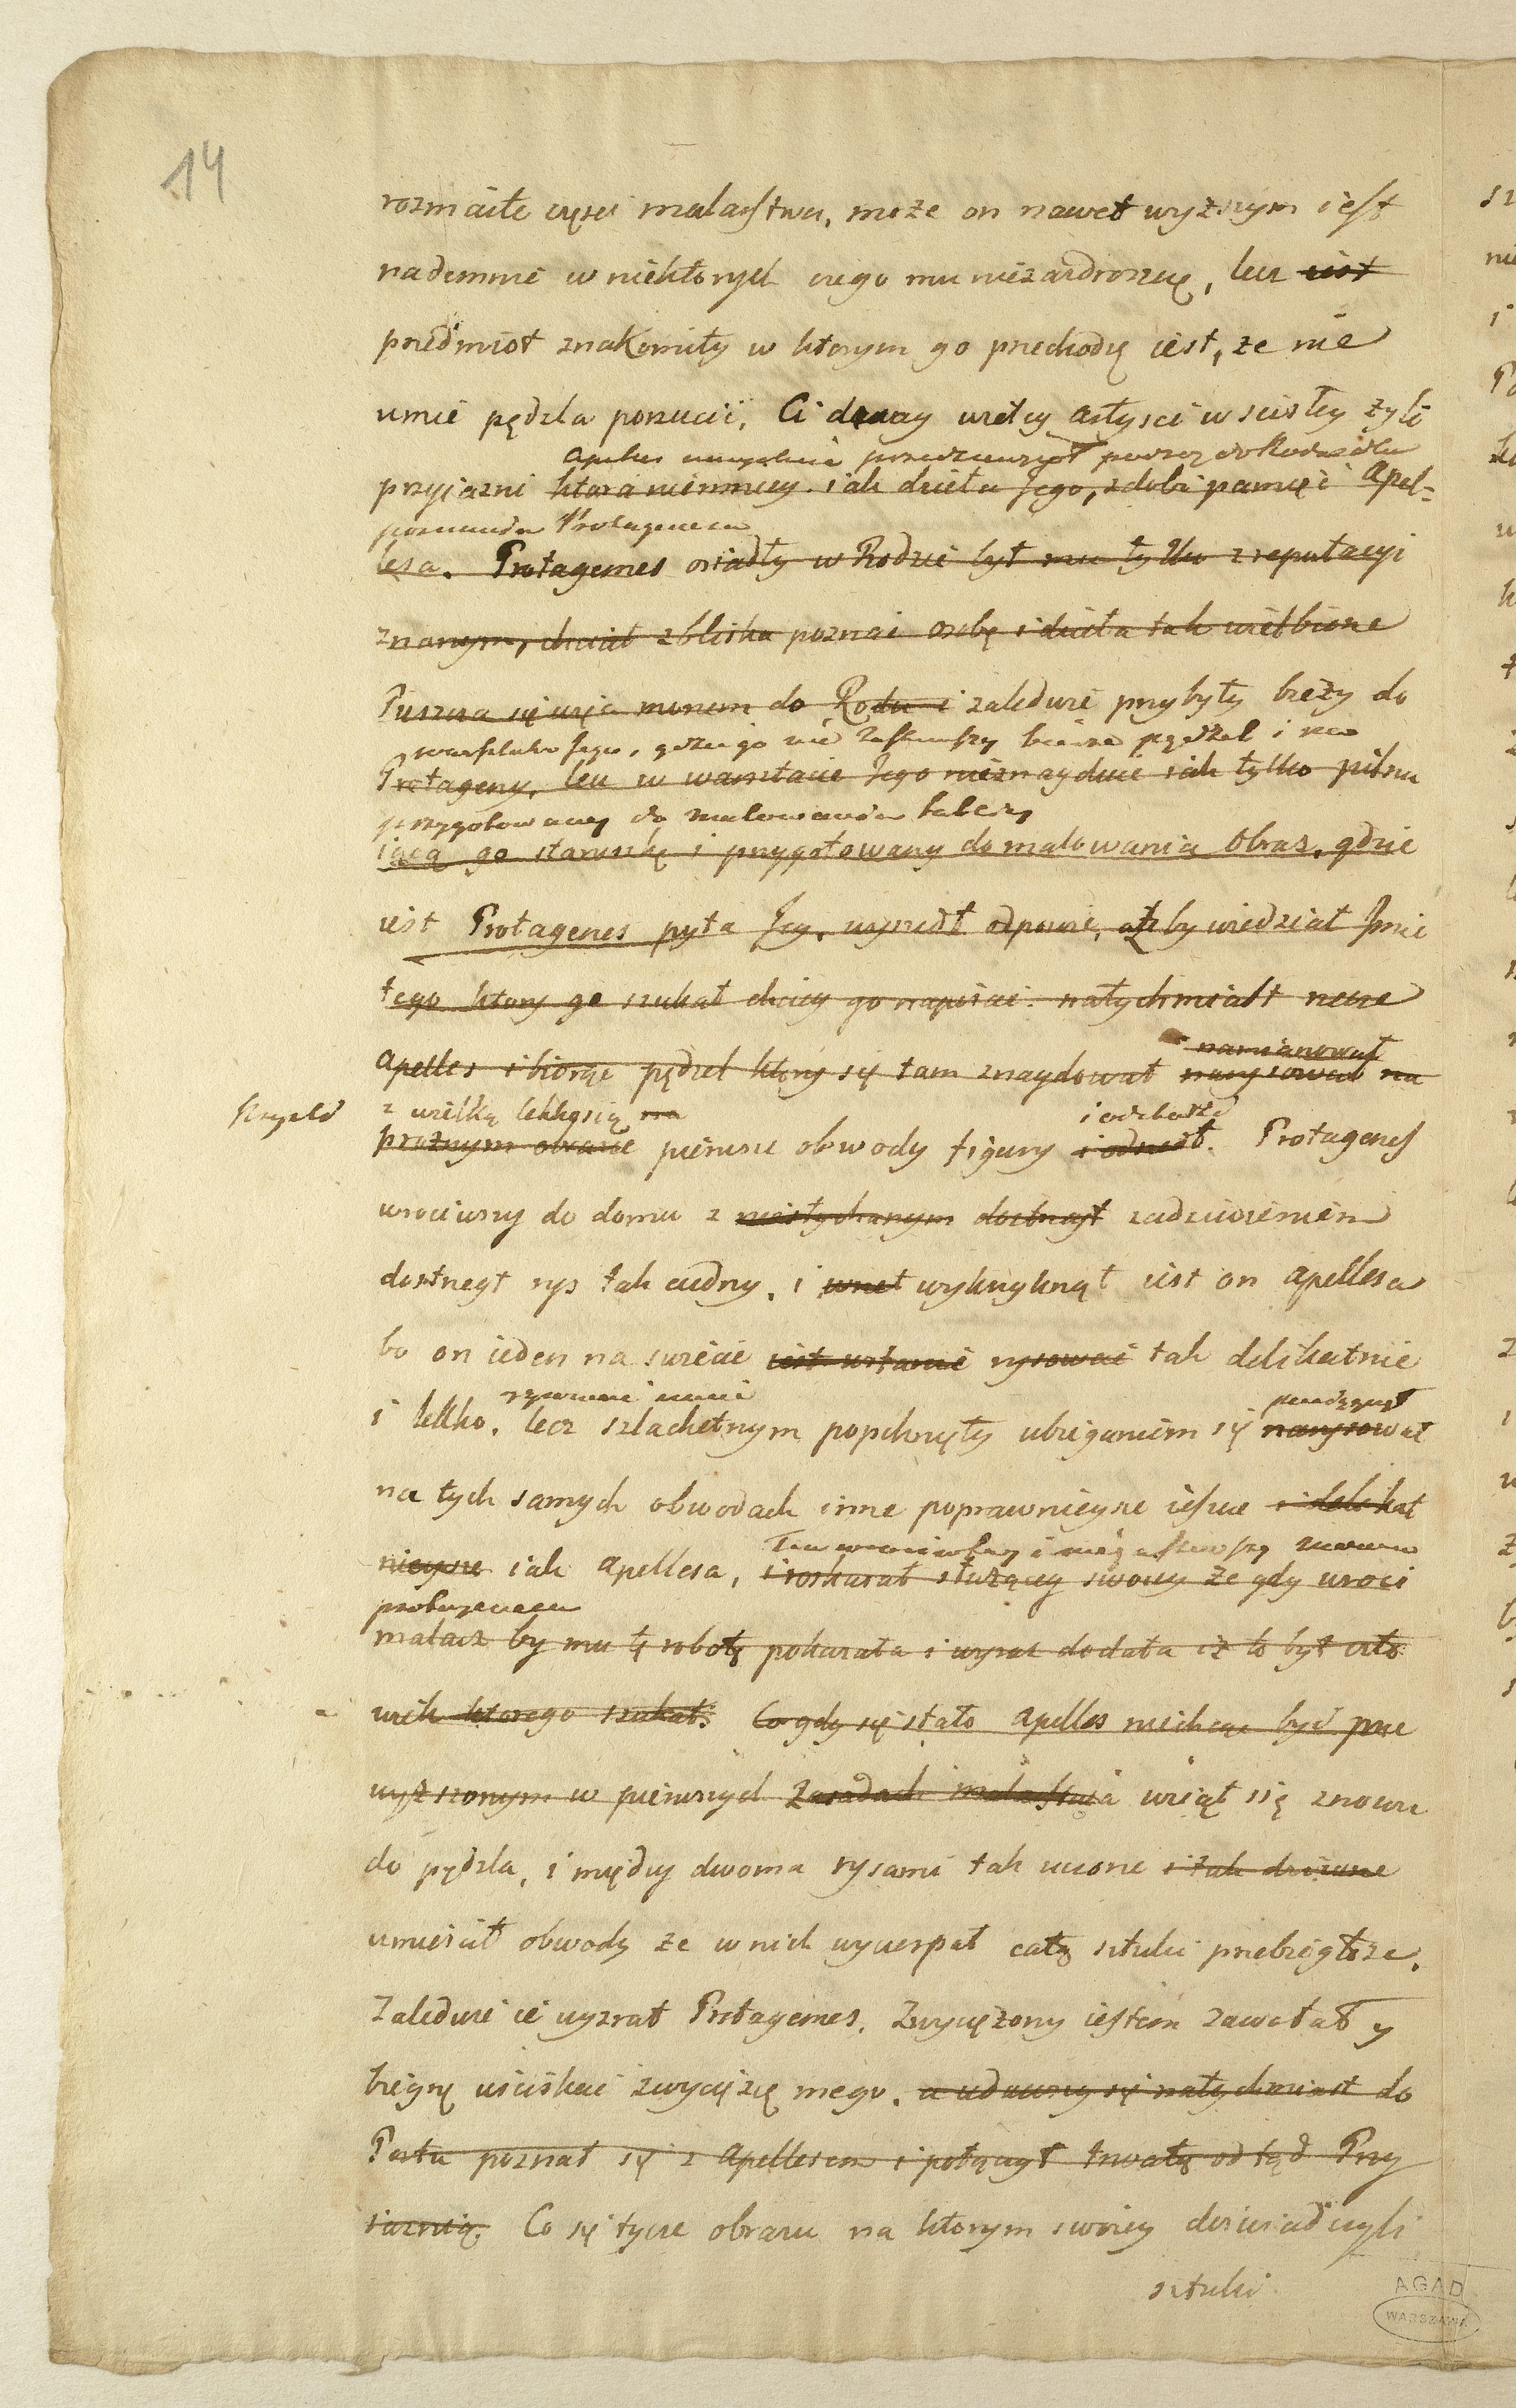 14
rozmaite częsci malarstwa, może on nawet wyższym iest
nademnie w niektorych czego mu niezazdroszczę, lecz iest
przedmiot znakomity w ktorym go przechodzę iest, że nie
umie pędzla porzucić. Ci dway wielcy artysci w scisłey żyli
Apelles umyslnie przedsięwziął podroz do Rodu dla
przyiazni ktora niemniey iak dzieła Jego, zdobi pamięć Apel=
poznania Protagenesa
lesa. Protagenes osiadły w Rodzie był mu tylko z reputacyi
znanym, chciał zbliska poznać osobę i dzieła tak wielbione
Puszcza się więc morzem do Rodu i zaledwie przybyły bieży do
warsztatu Jego, gdzie go nie zastawszy bierze pędzel i na
Protageny, lecz w warsztacie Jego nieznayduie iak tylko pilnu
przygotowaney do malowania tablicy
iącą go staruszkę i przygotowany do malowania Obraz, gdzie
iest Protagenes pyta Jey, wyszedł odpowie, ażeby wiedział Jmie
tego ktory go szukał chciey go napisać. natychmiast rzecze
Apelles i biorąc pędzel ktory się tam znaydował narysował na
namianował
z wielką lekkością na
i odchodzi
prożnym obrazie pierwsze obwody figury i odszedł. Protagenes
wrociwszy do domu z niesłychanym dostrzegł zadziwieniem
dostrzegł rys tak cudny, i wnet wykrzyknął iest on Apellesa
bo on ieden na swiecie iest w stanie rysować tak delikatnie
rysować umie
i lekko. lecz szlachetnym popchnięty ubieganiem się narysował
na tych samych obwodach inne poprawnieysze ieszcze i delikat
nieysze iak Apellesa, i roskazał służącey swoiey że gdy wroci
malarz by mu tę robotę pokazała i wyraz dodała iż to był czło
wiek ktorego szukał. Co gdy się stało Apelles niechcąc być prze
wyższonym w pierwszych zasadach malarstwa wziął się znowu
do pędzla, i między dwoma rysami tak uczone i tak dziwne
umieścił obwody że w nich wyczerpał całą sztuki przebiegłość.
Zaledwie ie uyzrał Protagenes. Zwyciężony iestem zawołał y
bieżę uściskać zwycięzcę mego. a udawszy się natychmiast do
Portu poznał się z Apellesem i połączył trwałą odtąd Przy
iaznią. Co się tycze obrazu na ktorym swoiey doswiadczyli
sztuki
AGAD
WARSZAWA